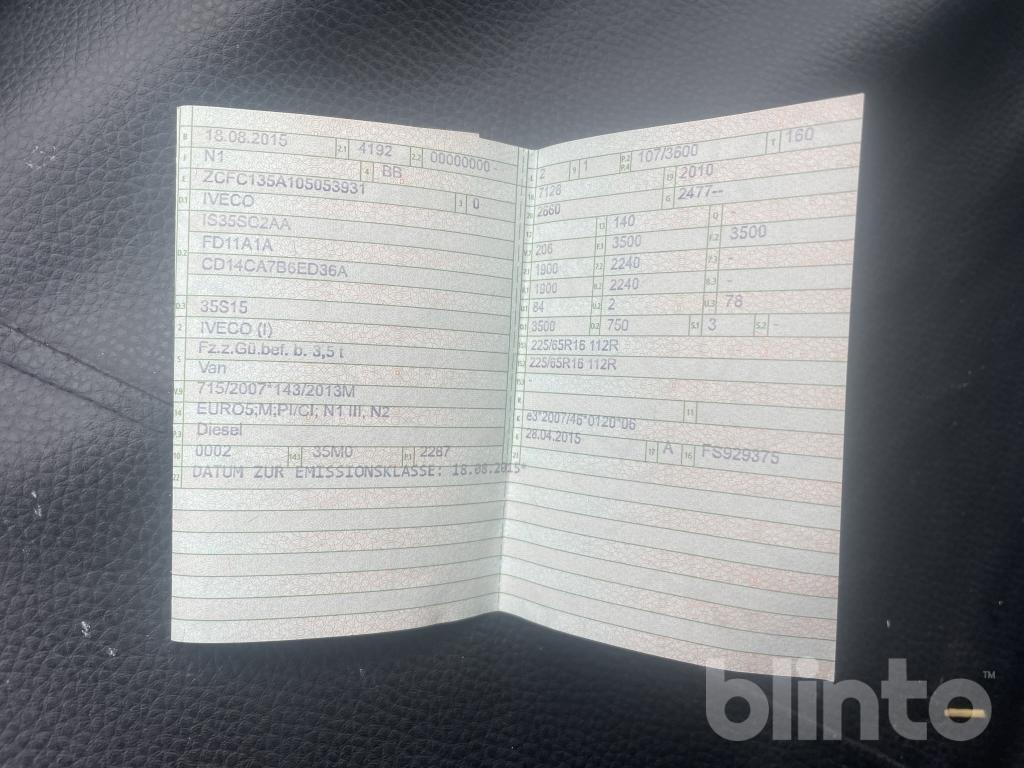 B 18.08.2015 2.1 4192 2.2 00000000 -
N1 4 BB
E ZCFC135A105053931 3 0
D.1 IVECO
IS35SC2AA
D.2 FD11A1A
CD14CA7B6ED36A
D.3 35S15
2 IVECO (I)
Fz.z.Gü.bef. b. 3,5 t
5 Van
V.9 715/2007*143/2013M
14 EURO5;M;PI/CI; N1 III, N2
P.3 Diesel
10 0002 14.1 35M0 P.1 2287
22 DATUM ZUR EMISSIONSKLASSE: 18.08.2015*
2 9 1 P.2 P.4 107/3500 T 160
7128 19 2010
2660 G 2477--
13 140 Q -
206 F.1 3500 F.2 3500
1900 7.2 2240 7.3 -
1900 8.2 2240 8.3 -
84 U.2 2 U.3 78
3500 O.2 750 S.1 3 S.2 -
225/65R16 112R
225/65R16 112R
-
R 11
K e3*2007/46*0120*06
6 28.04.2015 17 A 16 FS929375
21
blinto™